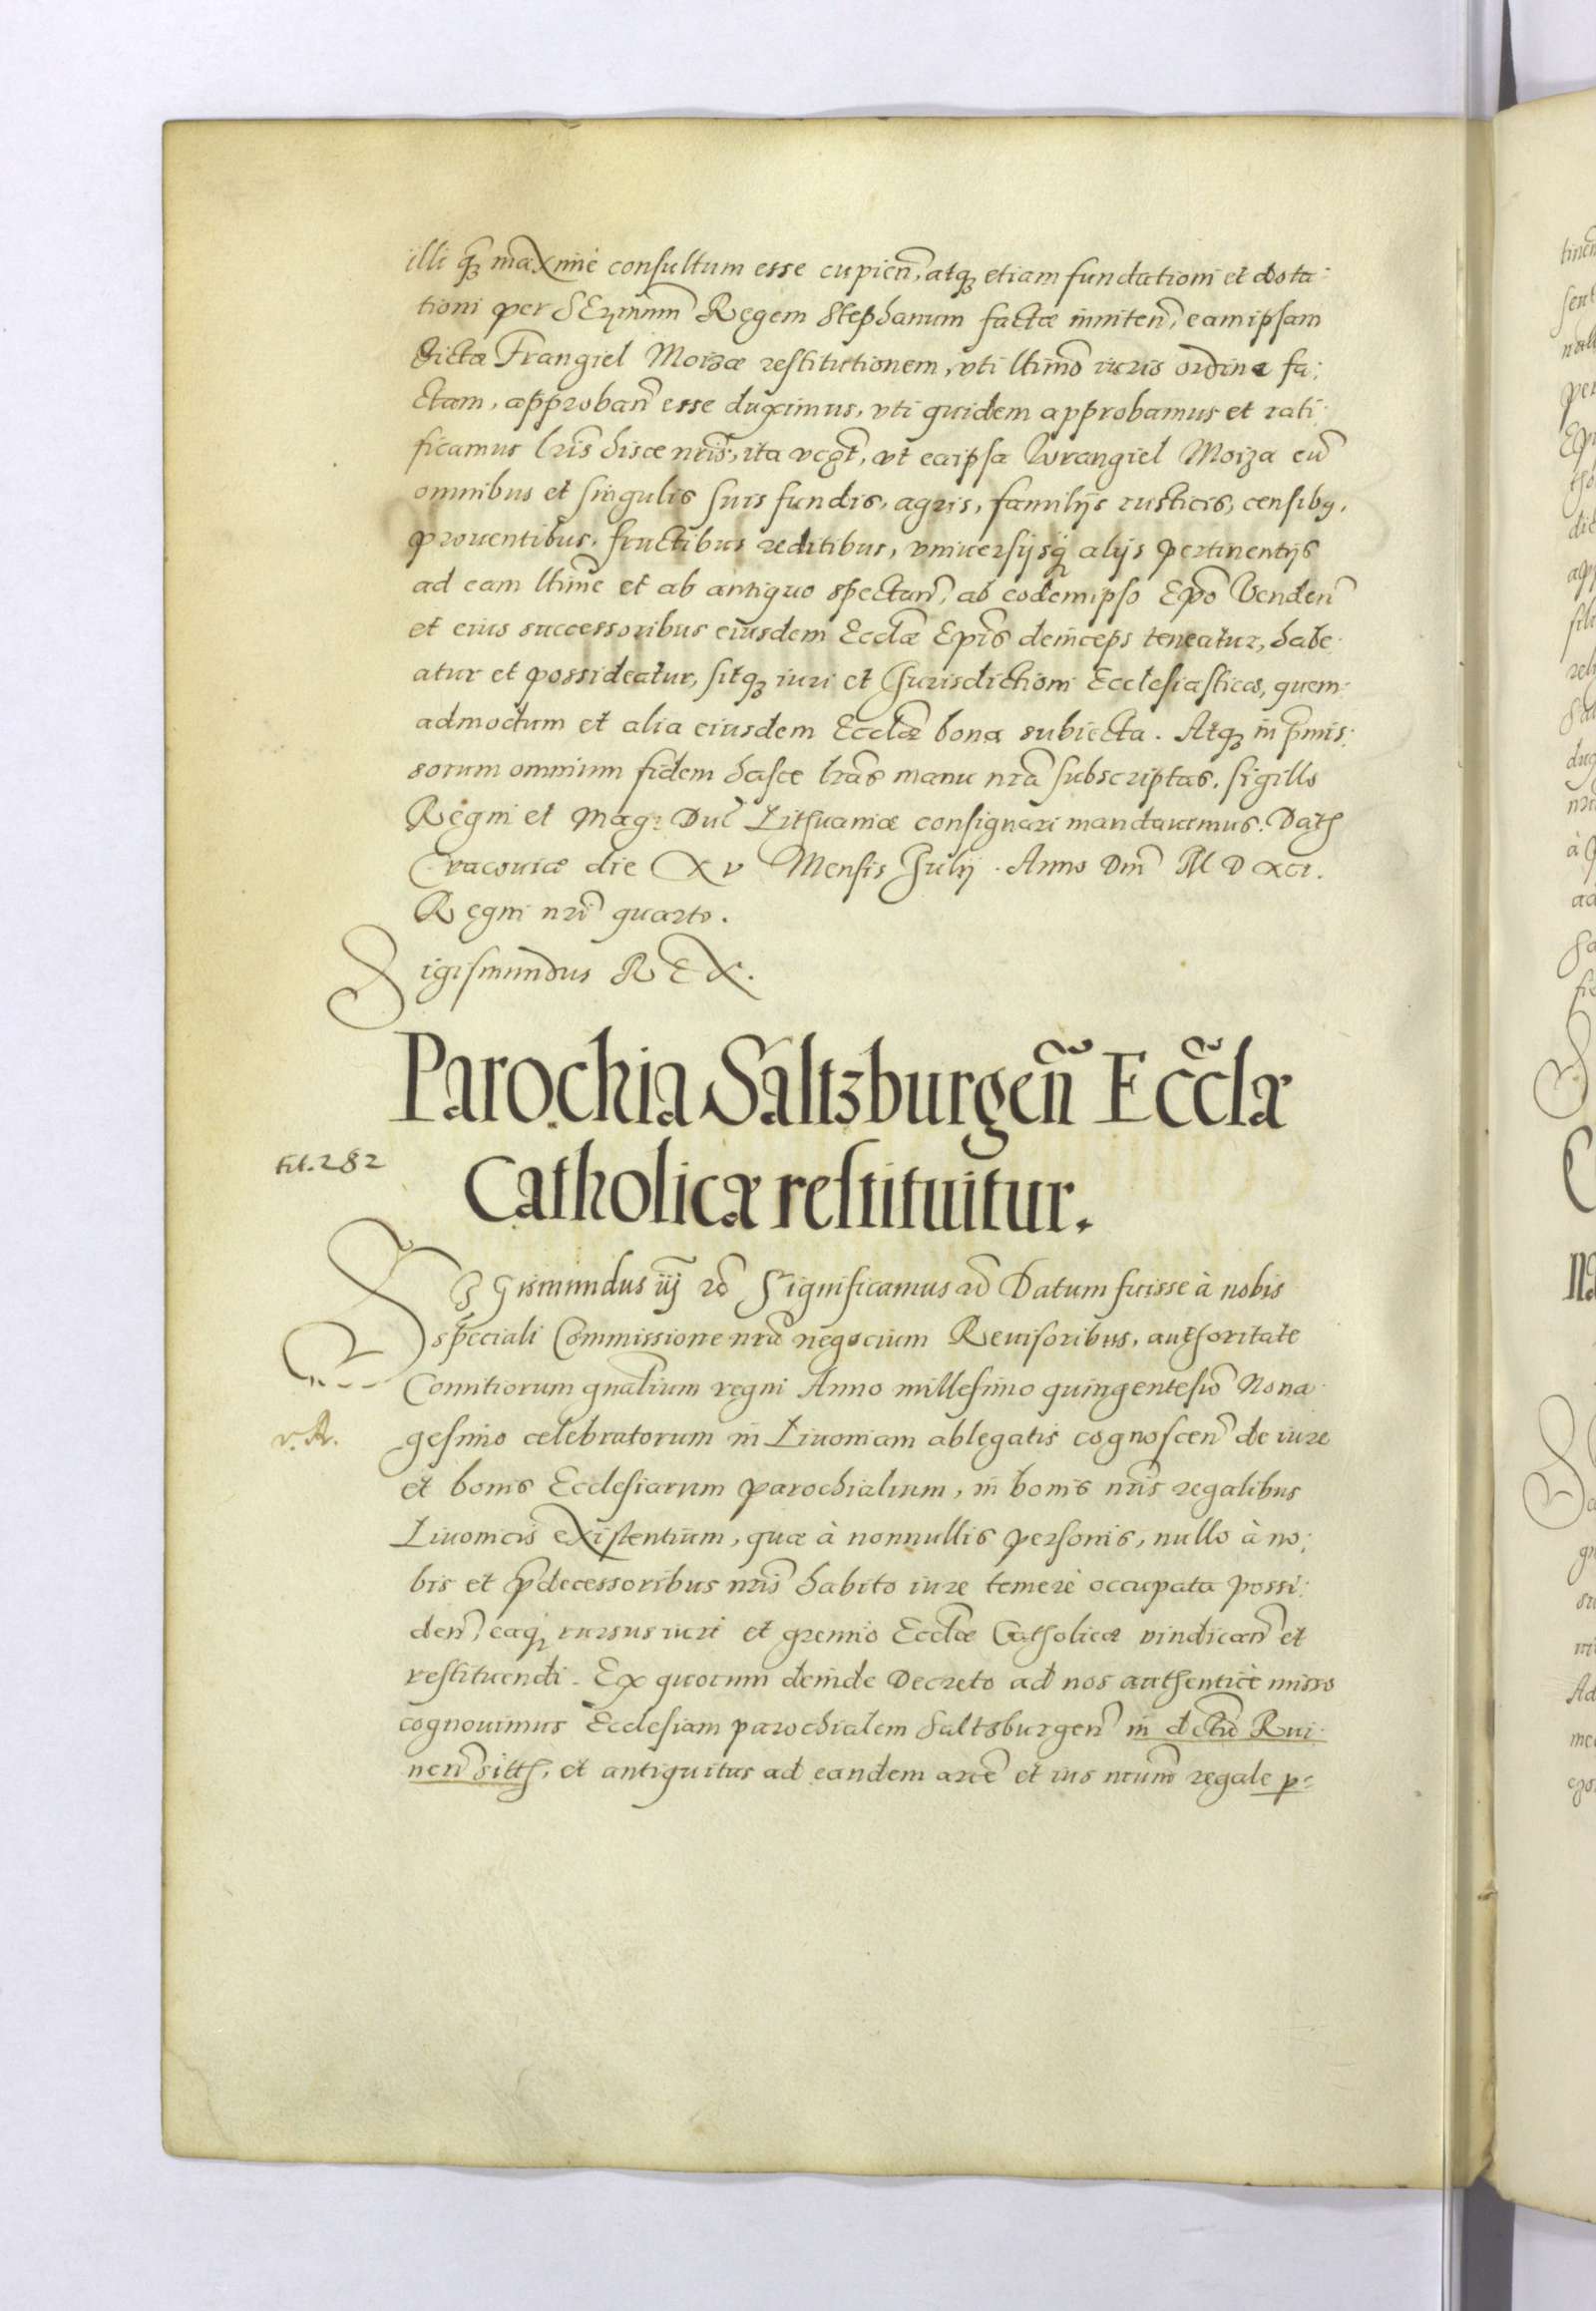 illi q̃ꝫ maXime consultum esse cupien̄, atqꝫ etiam fundationi et dota:
tioni per SErmum̃ Regem Stephanum factæ inniten̄, eamipsam
dictæ Frangiel Moizæ restitutionem, vti ltimo͂ iuris ordine fa:
ctam, approban̄ esse duximus, vti quidem approbamus et rati:
ficamus lr̃is hisce nr̃is, ita vcꝫt, vt eaipsa Wrangiel Moiza cũ
omnibus et singulis suis fundis, agris, familijs rusticis, censibꝫ,
prouentibus, fructibus reditibus, vniuersijsqꝫ alijs pertinentijs
ad eam ltimẽ et ab antiquo spectan̄, ab eodemipso Ep̃o Venden̄
et eius successoribus eiusdem Eccl̃æ Ep̃is deinceps teneatur, habe:
atur et possideatur, sitqꝫ iuri et Jurisdictioni Ecclesiasticæ, quem:
admodum et alia eiusdem Eccl̃æ bona subiecta. Atqꝫ in p̃mis:
sorum omnium fidem hasce lr̃as manu nr̃a subscriptas, sigillo
Regni et Mag: Duc̃ Lithuaniæ consignari mandauimus. Dat̃
Cracouiæ die XV Mensis Julij. Anno Dnĩ M D XCI.
Regni nr̃i quarto.
Sigismundus REX.
Parochia Saltzburgen̄ Eccl̃æ
Catholicæ restituitur.
tit. 282
SIGismundus iij r͂o Significamus r͂o Datum fuisse à nobis
speciali Commissione nr̃a negocium Reuisoribus, authoritate
Comitiorum gnal̃ium regni Anno millesimo quingentesi͂o Nona:
v. R.
gesimo celebratorum in Liuoniam ablegatis cognoscen̄ de iure
et bonis Ecclesiarum parochialium, in bonis nr̃is regalibus
Liuonicis eXistentium, quæ à nonnullis personis, nullo à no:
bis et p̃decessoribus nr̃is habito iure temerè occupata possi:
den̄, eaqꝫ rursus iuri et gremio Eccl̃æ Catholicæ vindican̄ et
restituendi. Ex quorum deinde Decreto ad nos authenticè misso
cognouimus Ecclesiam parochialem Saltsburgen̄ in dc̃tu Rui:
nen̄ sitt̃, et antiquitus ad eandem arcẽ et ius nr̃um regale p=